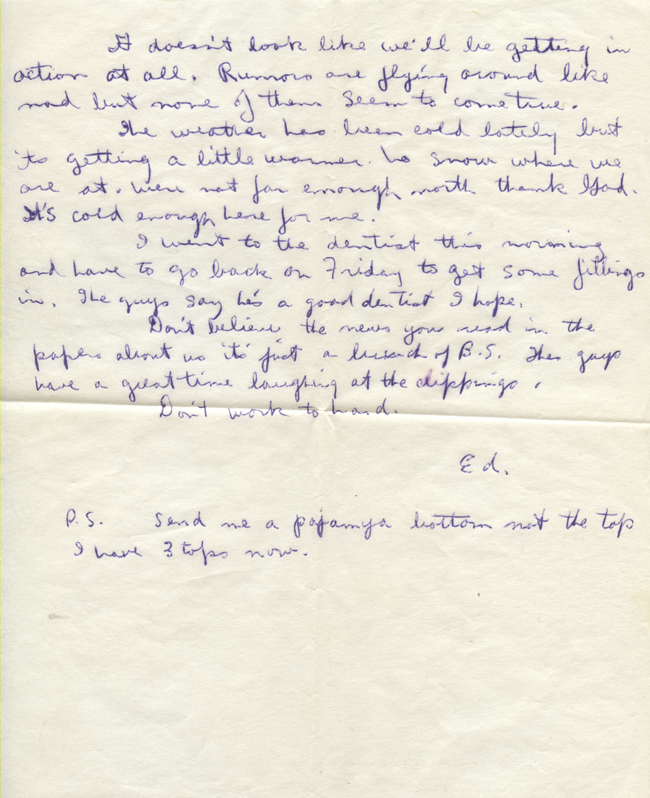 It doesn't look like we'll be getting in
action at all. Rumors are flying around like
mad but none of them seem to come true.
The weather has been cold lately but
its getting a little warmer. No snow where we
are at. Were not far enough north thank God.
It's cold enough here for me.
I went to the dentist this morning
and have to go back on Friday to get some fillings
in. The guys say he's a good dentist I hope.
Don't believe the news you read in the
papers about us it's just a bunch of B.S. The guys
have a great time laughing at the clippings.
Don't work to hard.
Ed.
P.S. Send me a pajamya bottom not the top
I have 3 tops now.